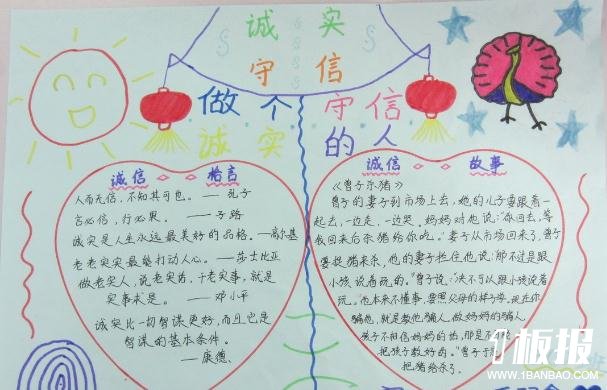 诚实
守信
做个守信
诚实的人
诚信 格言
人而无信,不知其可也。——孔子
言必信,行必果。——子路
诚实是人生永远最美好的品格。——高尔基
老老实实最能打动人心。——莎士比亚
做老实人,说老实话,干老实事,就是
实事求是。——邓小平
诚实比一切智谋更好,而且它是
智谋的基本条件。
——康德
诚信 故事
《曾子杀猪》
曾子的妻子到市场上去,她的儿子要跟着一
起去,一边走,一边哭。妈妈对他说:“你回去,等
我回来后杀猪给你吃。”妻子从市场回来了,曾子
要捉猪来杀,他的妻子拦住他说:“那不过是跟
小孩说着玩的。”曾子说:“决不可以跟小孩说着
玩。他本来不懂事,要照父母的样子学。现在你
骗他,就是教他骗人。做妈妈的骗人
孩子不相信妈妈的话,那是不
把孩子教好的。”曾子于
把猪给杀了。
板报
WWW.1BANBAO.COM